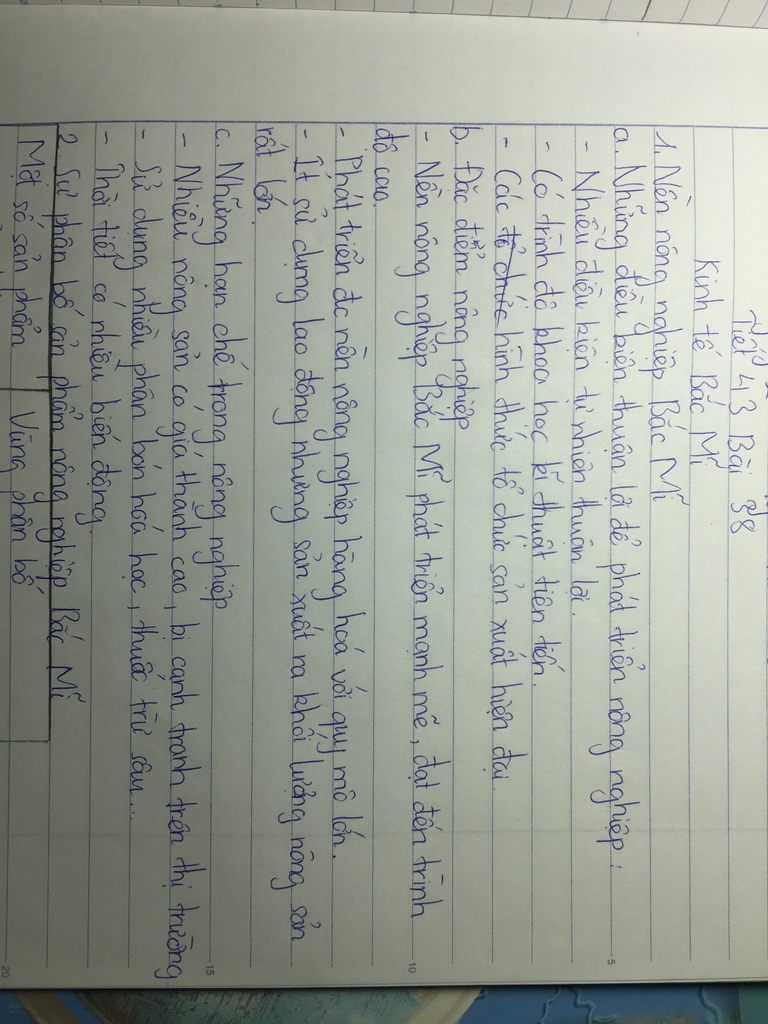 Tiết 43 Bài 38
Kinh tế Bắc Mĩ
1. Nền nông nghiệp Bắc Mĩ
a. Những điều kiện thuận lợi để phát triển nông nghiệp:
- Nhiều điều kiện tự nhiên thuận lợi.
- Có trình độ khoa học kĩ thuật tiên tiến.
- Các tổ chức hình thức tổ chức sản xuất hiện đại.
b. Đặc điểm nông nghiệp
- Nền nông nghiệp Bắc Mĩ phát triển mạnh mẽ, đạt đến trình
độ cao.
- Phát triển đc nền nông nghiệp hàng hoá với quy mô lớn.
- Ít sử dụng lao động nhưng sản xuất ra khối lượng nông sản
rất lớn.
c. Những hạn chế trong nông nghiệp
- Nhiều nông sản có giá thành cao, bị cạnh tranh trên thị trường.
- Sử dụng nhiều phân bón hoá học, thuốc trừ sâu...
- Thời tiết có nhiều biến động.
2. Sự phân bố sản phẩm nông nghiệp Bắc Mĩ
Một số sản phẩm Vùng phân bố
5
10
15
20